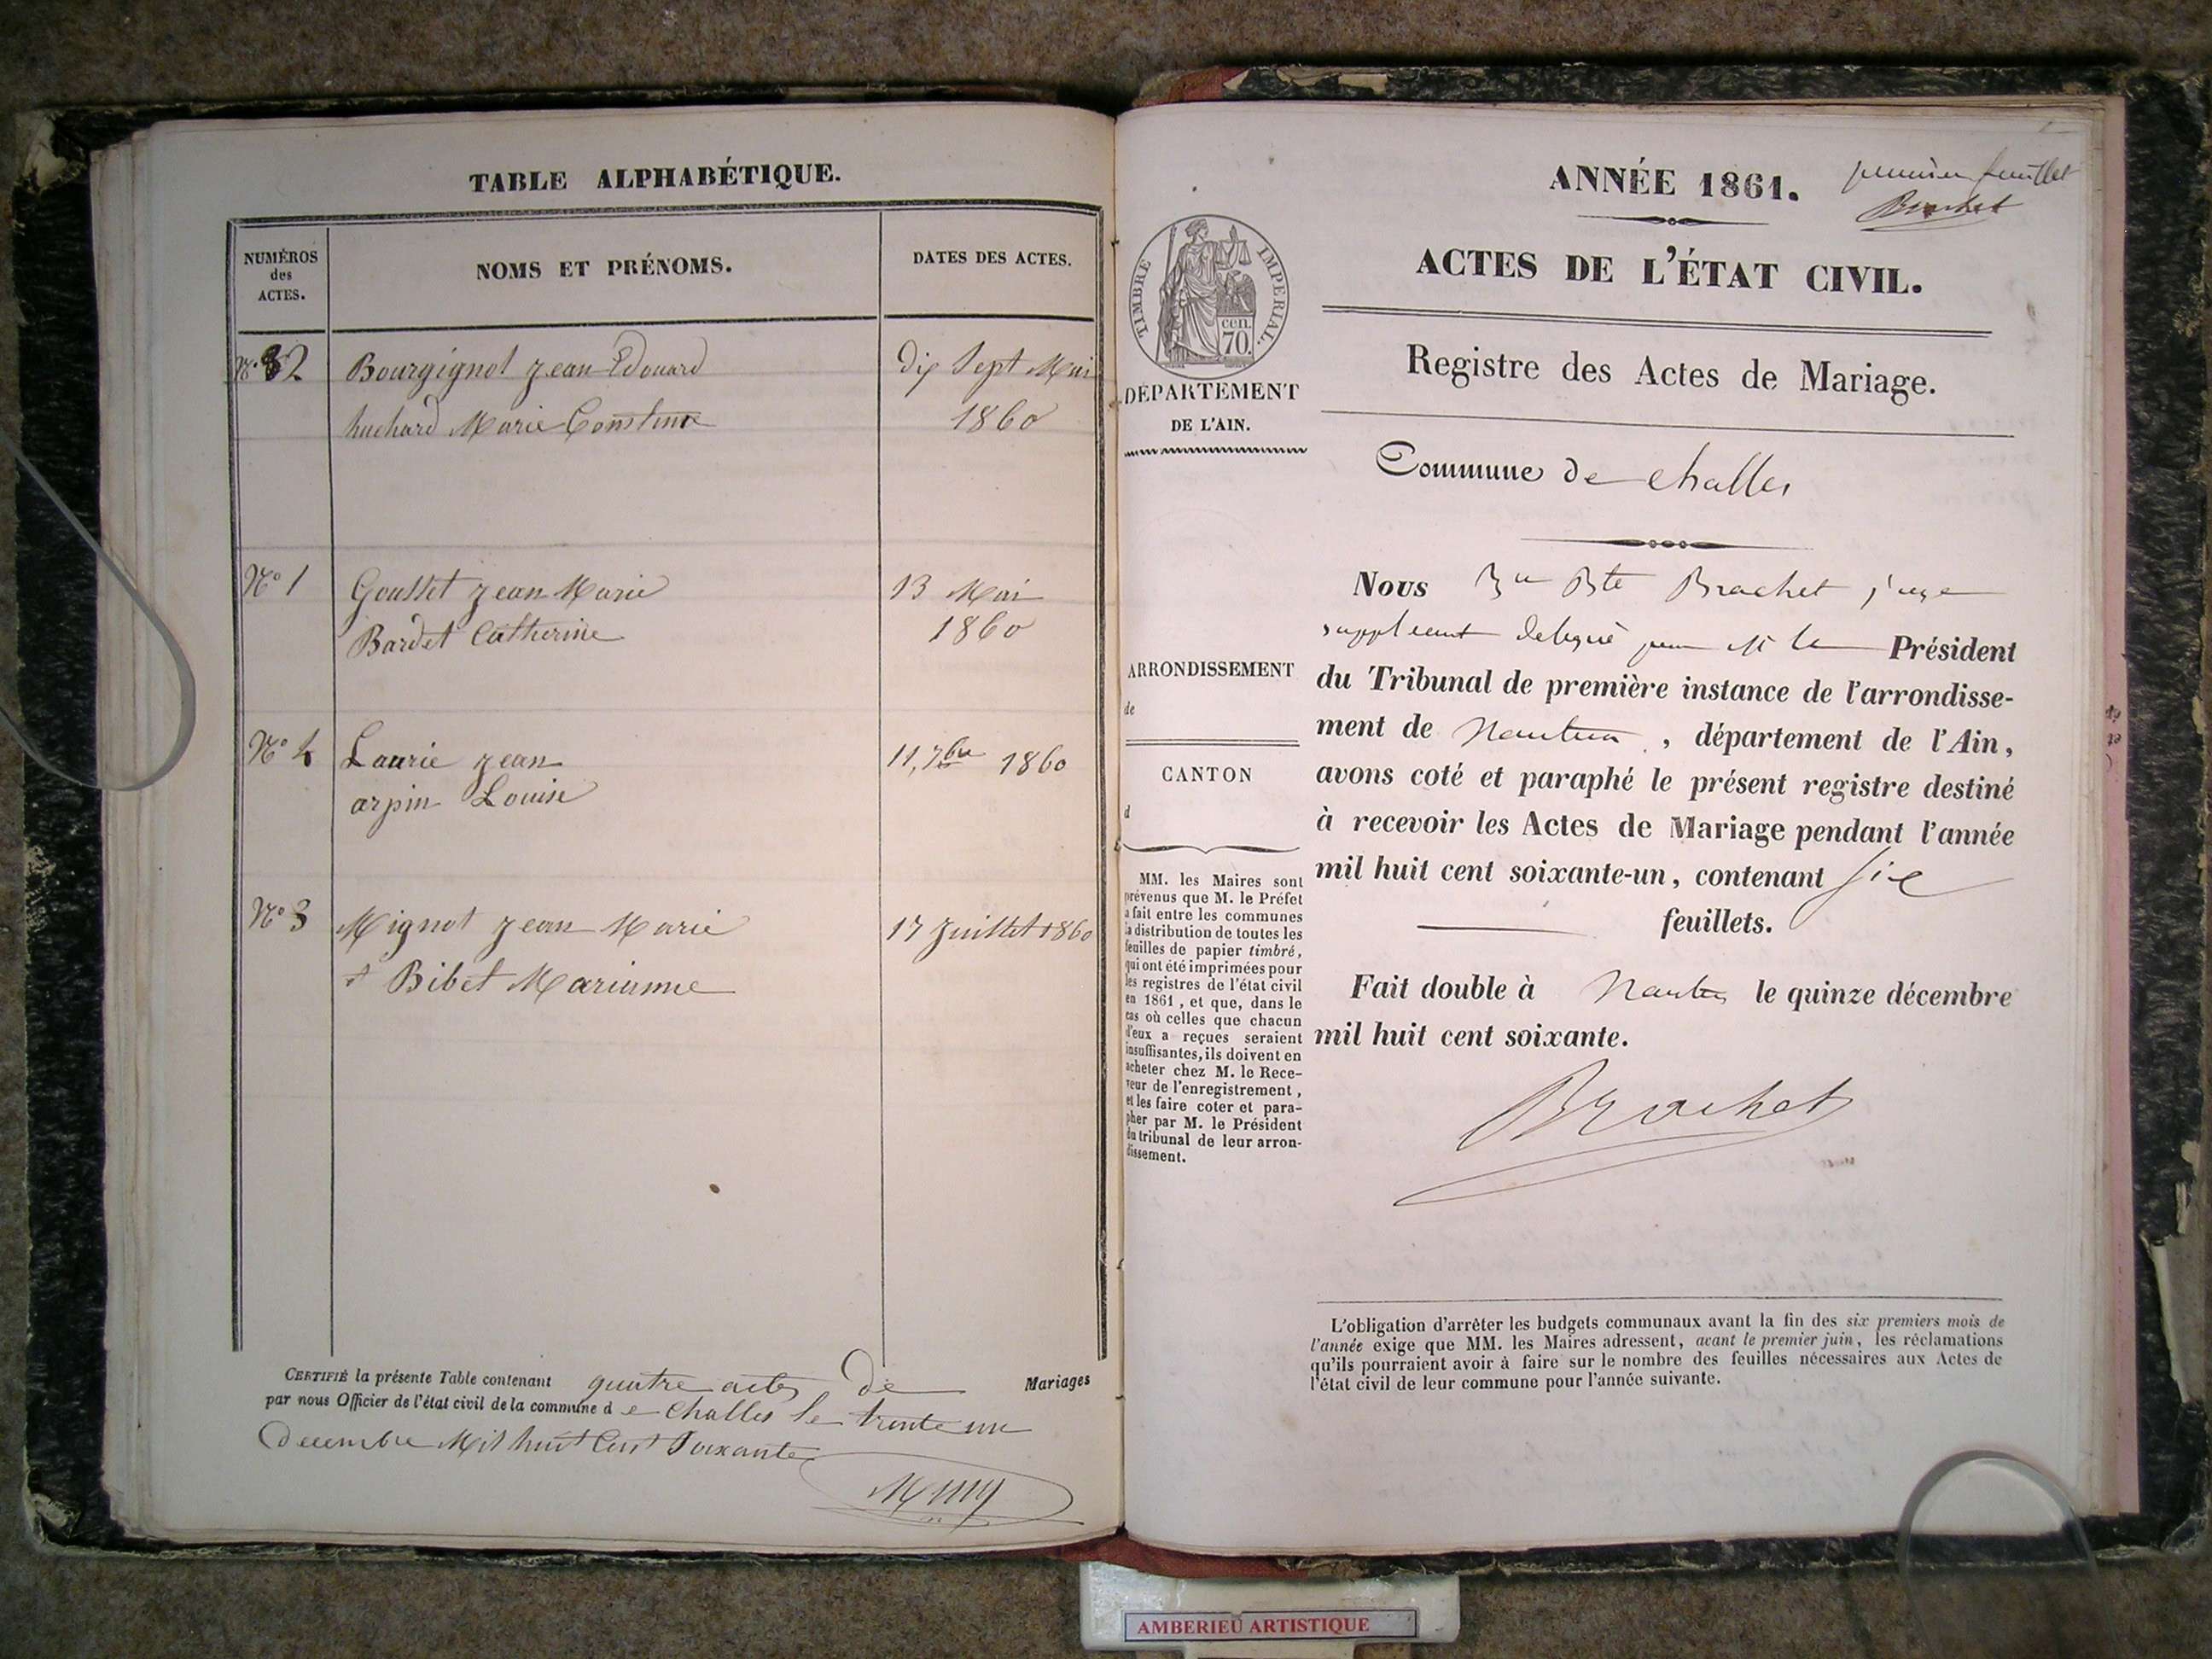 TABLE ALPHABÉTIQUE.
NUMÉROS
des
ACTES.
NOMS ET PRÉNOMS.
DATES DES ACTES.
N° 2
Bourgignot Jean Edouard
dix Sept Mai
huchard Marie
1860
N° 1
Gousset Jean Marie
13 Mai
Bardet Catherine
1860
N° 4
Laurie Jean
11, 7bre 1860
arpin Louise
N° 3
Mignot Jean Marie
17 Juillet 1860
& Bibet Marianne
CERTIFIÉ la présente Table contenant quatre actes de Mariages
par nous Officier de l'état civil de la commune d e Challes le trente un
decembre Mil huit Cent Soixante
ANNÉE 1861.
premier feuillet
Brachet
TIMBRE IMPERIAL.
cen.
70.
ACTES DE L'ÉTAT CIVIL.
Registre des Actes de Mariage.
DÉPARTEMENT
DE L'AIN.
Commune de challes
ARRONDISSEMENT
de
CANTON
d
MM. les Maires sont
prévenus que M. le Préfet
a fait entre les communes
la distribution de toutes les
feuilles de papier timbré,
qui ont été imprimées pour
les registres de l'état civil
en 1861, et que, dans le
cas où celles que chacun
d'eux a reçues seraient
insuffisantes, ils doivent en
acheter chez M. le Rece-
veur de l'enregistrement,
et les faire coter et para-
pher par M. le Président
du tribunal de leur arron-
dissement.
Nous Bte Brachet juge
suppleant delegué par M le Président
du Tribunal de première instance de l'arrondisse-
ment de Nantua, département de l'Ain,
avons coté et paraphé le présent registre destiné
à recevoir les Actes de Mariage pendant l'année
mil huit cent soixante-un, contenant six
feuillets.
Fait double à Nantua le quinze décembre
mil huit cent soixante.
Brachet
L'obligation d'arrêter les budgets communaux avant la fin des six premiers mois de
l'année exige que MM. les Maires adressent, avant le premier juin, les réclamations
qu'ils pourraient avoir à faire sur le nombre des feuilles nécessaires aux Actes de
l'état civil de leur commune pour l'année suivante.
AMBERIEU ARTISTIQUE